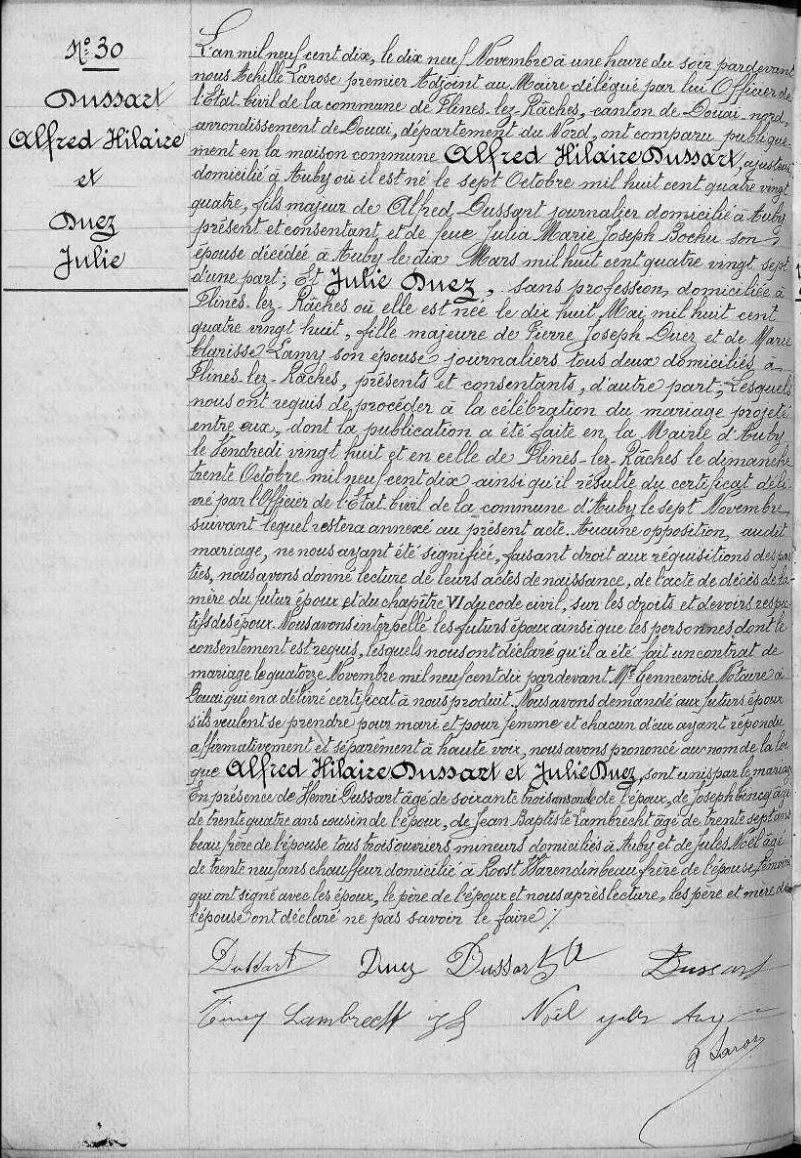 N° 30
Dussart
Alfred Hilaire
et
Duez
Julie
L'an mil neuf cent dix, le dix neuf Novembre à une heure du soir par devant
nous Achille Larose premier Adjoint au Maire délégué par lui Officier de
l'Etat Civil de la commune de Flines-lez-Râches, canton de Douai-nord,
arrondissement de Douai, département du Nord, ont comparu publique-
ment en la maison commune Alfred Hilaire Dussart, ajusteur
domicilié à Auby où il est né le sept Octobre mil huit cent quatre vingt
quatre, fils majeur de Alfred Dussart journalier domicilié à Auby
présent et consentant, et de feue Julia Marie Joseph Bochu son
épouse décédée à Auby le dix Mars mil huit cent quatre vingt sept
d'une part; Et Julie Duez, sans profession, domiciliée à
Flines-lez-Râches où elle est née le dix huit Mai mil huit cent
quatre vingt huit, fille majeure de Pierre Joseph Duez et de Marie
Clarisse Lamy son épouse journaliers tous deux domiciliés à
Flines-lez-Râches, présents et consentants, d'autre part; Lesquels
nous ont requis de procéder à la célébration du mariage projeté
entre eux, dont la publication a été faite en la Mairie d'Auby
le Vendredi vingt huit et en celle de Flines-lez-Râches le dimanche
trente Octobre mil neuf cent dix ainsi qu'il résulte du certificat déli-
vré par l'Officier de l'Etat Civil de la commune d'Auby le sept Novembre
suivant lequel restera annexé au présent acte. Aucune opposition, audit
mariage, ne nous ayant été signifiée, faisant droit aux réquisitions des par-
ties, nous avons donné lecture de leurs actes de naissance, de l'acte de décès de la
mère du futur époux et du chapitre VI du code civil, sur les droits et devoirs respec-
tifs des époux. Nous avons interpellé les futurs époux ainsi que les personnes dont le
consentement est requis, lesquels nous ont déclaré qu'il a été fait un contrat de
mariage le quatorze Novembre mil neuf cent dix par devant Me Gennevoise Notaire à
Douai qui en a délivré certificat à nous produit. Nous avons demandé aux futurs époux
s'ils veulent se prendre pour mari et pour femme et chacun d'eux ayant répondu
affirmativement et séparément à haute voix, nous avons prononcé au nom de la loi
que Alfred Hilaire Dussart et Julie Duez, sont unis par le mariage
En présence de Henri Dussart âgé de soixante trois ans oncle de l'époux, de Joseph âgé
de trente quatre ans cousin de l'époux, de Jean Baptiste Lambrecht âgé de trente sept ans
beau frère de l'épouse tous trois ouvriers mineurs domiciliés à Auby et de Jules Noël âgé
de trente neuf ans chauffeur domicilié à Roost Warendin beau frère de l'épouse, témoins
qui ont signé avec les époux, le père de l'époux et nous après lecture, les père et mère de
l'épouse ont déclaré ne pas savoir le faire ./.
Dussart Duez Dussart Dussart
Lambrecht Noël
A Larose